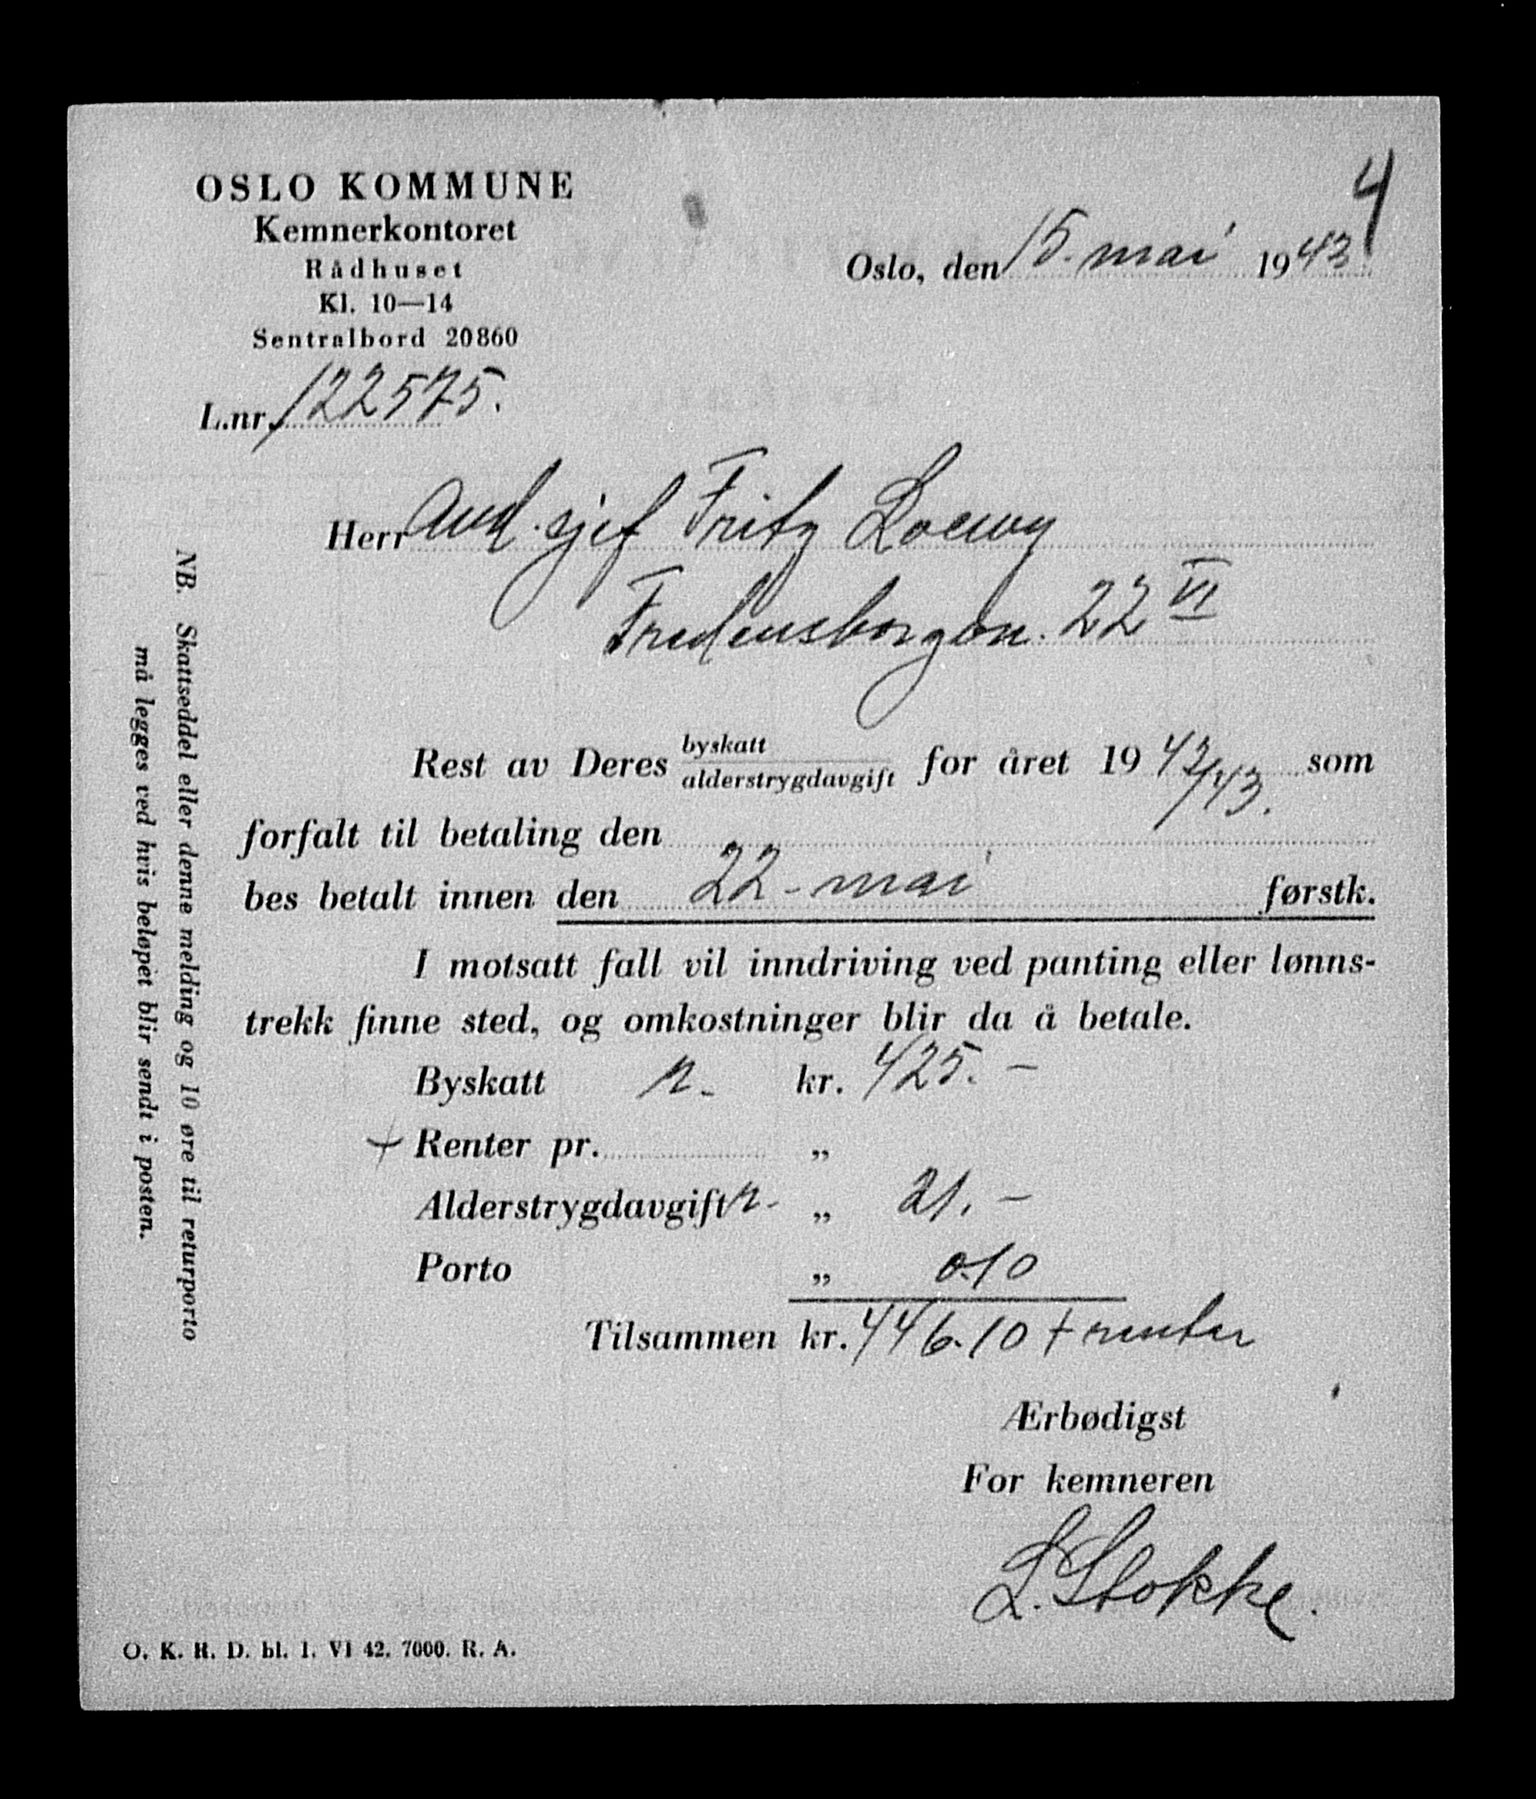 4
OSLO KOMMUNE
Kemnerkontoret
Rådhuset
Kl. 10—14
Sentralbord 20860
Oslo, den 15. mai 1943
L.nr. 122575.
Herr Avd. sjef Fritz Loewy
Fredensborgvn. 22 VI
Rest av Deres byskatt
alderstrygdavgift for året 1942/43. som
forfalt til betaling den
bes betalt innen den 22. mai førstk.
I motsatt fall vil inndriving ved panting eller lønns-
trekk finne sted, og omkostninger blir da å betale.
Byskatt r. kr. 425. —
+ Renter pr. „
Alderstrygdavgift r. „ 21. —
Porto „ 0.10
Tilsammen kr. 446.10 + renter
Ærbødigst
For kemneren
L. Stokke.
NB. Skattseddel eller denne melding og 10 øre til returporto
må legges ved hvis beløpet blir sendt i posten.
O. K. R. D. bl. 1. VI 42. 7000. R. A.